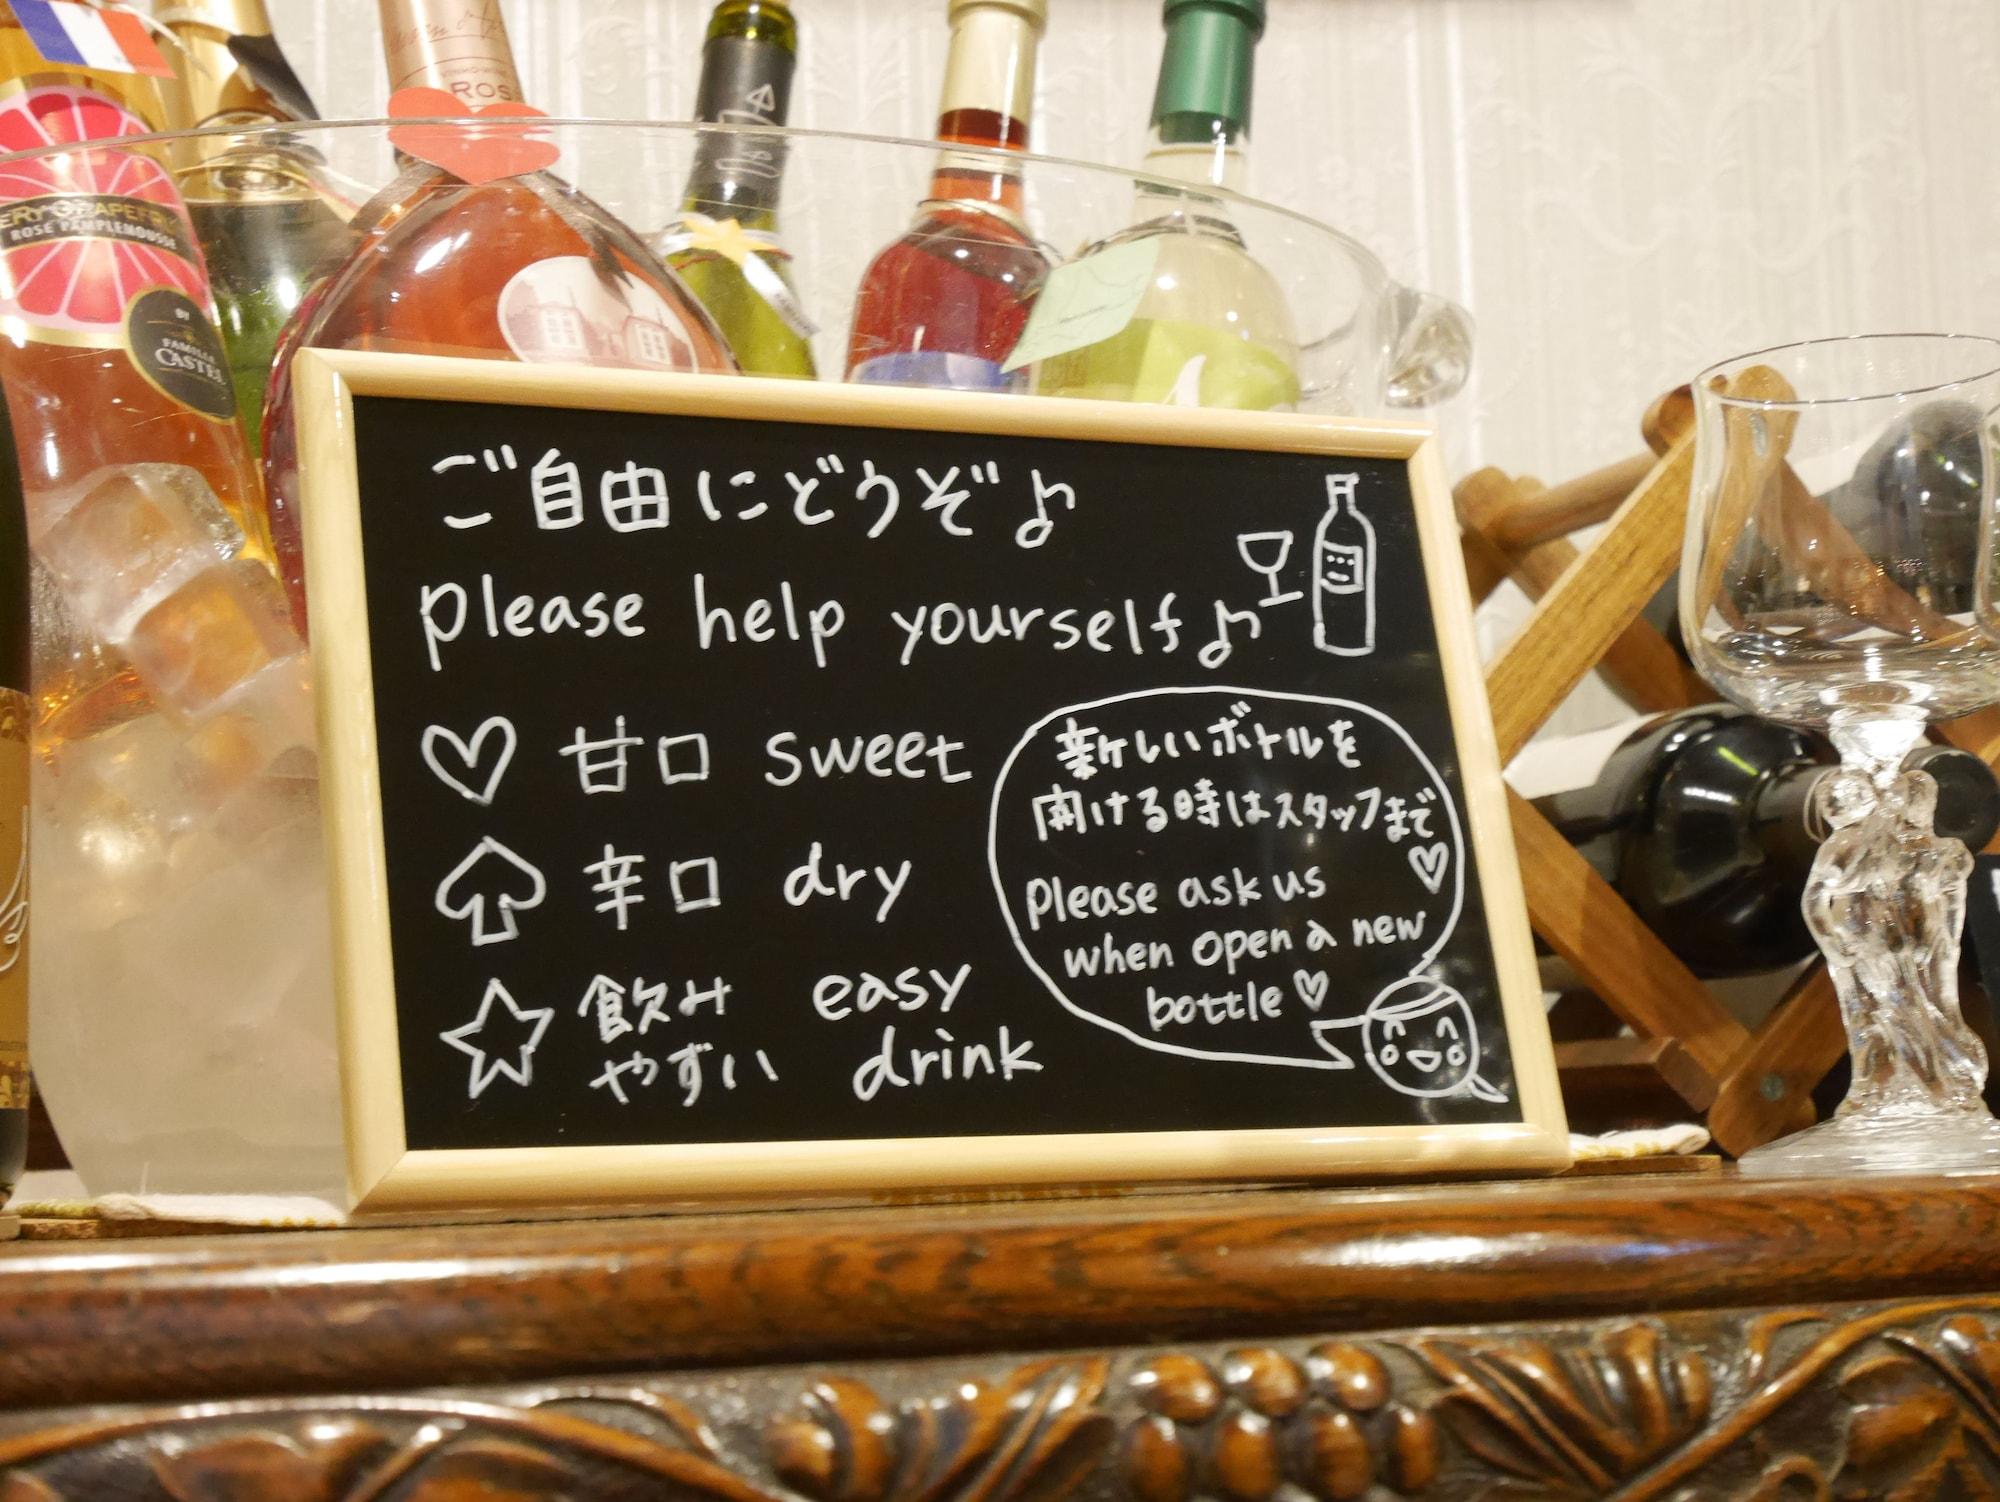 ROSE
ERY GRAPEFRUI
ROSÉ PAMPLEMOUSSE
BY
FAMILLE
CASTEL
ご自由にどうぞ♪
please help yourself♪
♡ 甘口 sweet
♠ 辛口 dry
☆ 飲み easy
やずい drink
新しいボトルを
開ける時はスタッフまで
♡
please ask us
when open a new
bottle♡